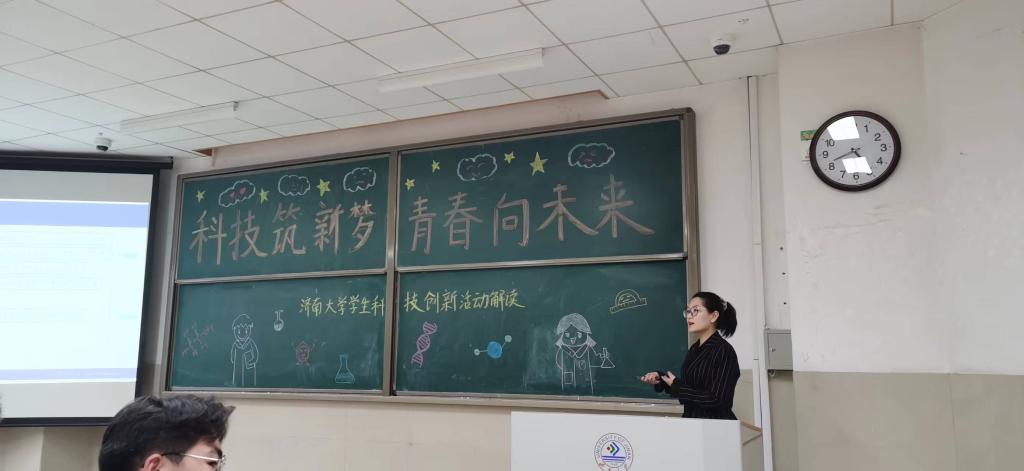 科技筑新梦 青春向未来
济南大学学生科技创新活动解读
UNIVERSITY OF JINAN
12
1
2
3
4
5
6
7
8
9
10